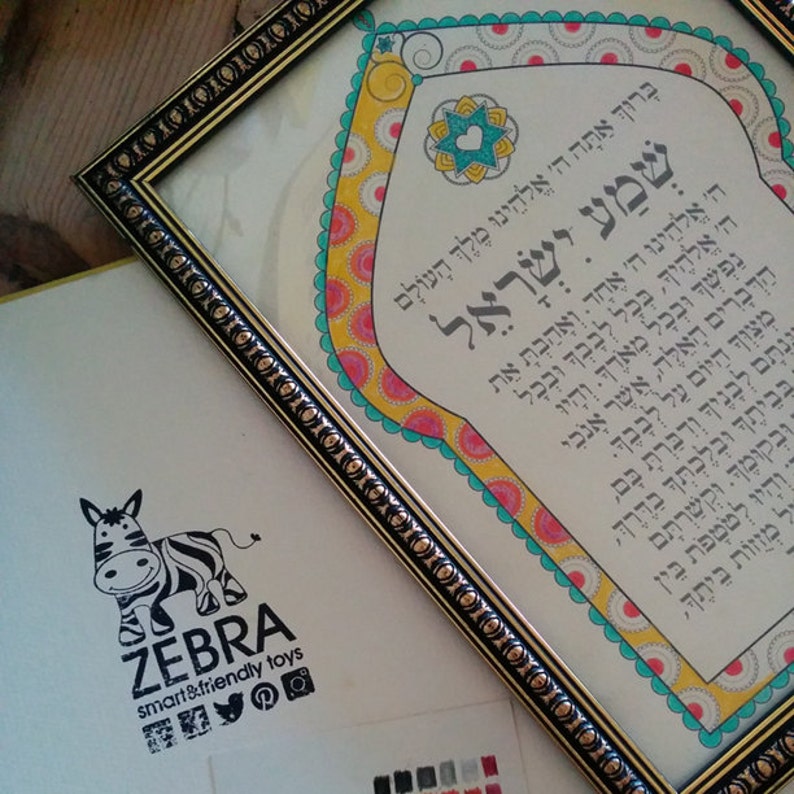 בָּרוּךְ אַתָּה ה' אֱלֹהֵינוּ מֶלֶךְ הָעוֹלָם
שְׁמַע יִשְׂרָאֵל
ה' אֱלֹהֵינוּ ה' אֶחָד וְאָהַבְתָּ אֵת
ה' אֱלֹהֶיךָ, בְּכָל לְבָבְךָ וּבְכָל
נַפְשְׁךָ וּבְכָל מְאֹדֶךָ. וְהָיוּ
הַדְּבָרִים הָאֵלֶּה, אֲשֶׁר אָנֹכִי
מְצַוְּךָ הַיּוֹם עַל לְבָבֶךָ
לְבָנֶיךָ וְדִבַּרְתָּ בָּם,
בְּבֵיתֶךָ וּבְלֶכְתְּךָ בַדֶּרֶךְ,
וּבְקוּמֶךָ. וּקְשַׁרְתָּם
וְהָיוּ לְטֹטָפֹת בֵּין
מְזוּזֹת בֵּיתֶךָ,
ZEBRA
smart&friendly toys